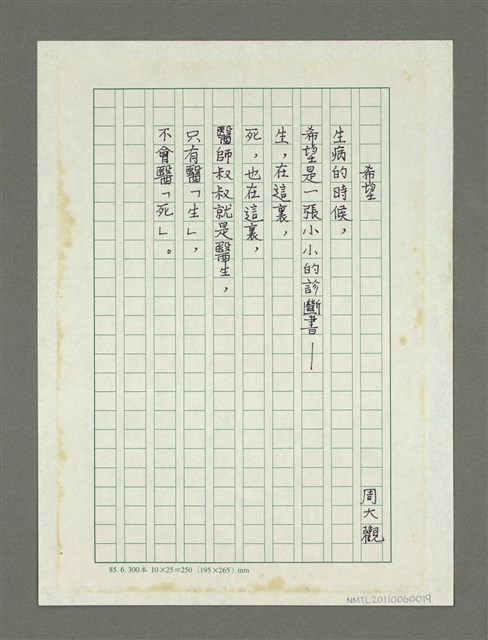 希望
周大觀
生病的時候，
希望是一張小小的診斷書—
生，在這裏，
死，也在這裏，
醫師叔叔就是醫生，
只有醫「生」，
不會醫「死」。
85. 6. 300本 10×25=250 (195×265) mm
NMTL20110060019